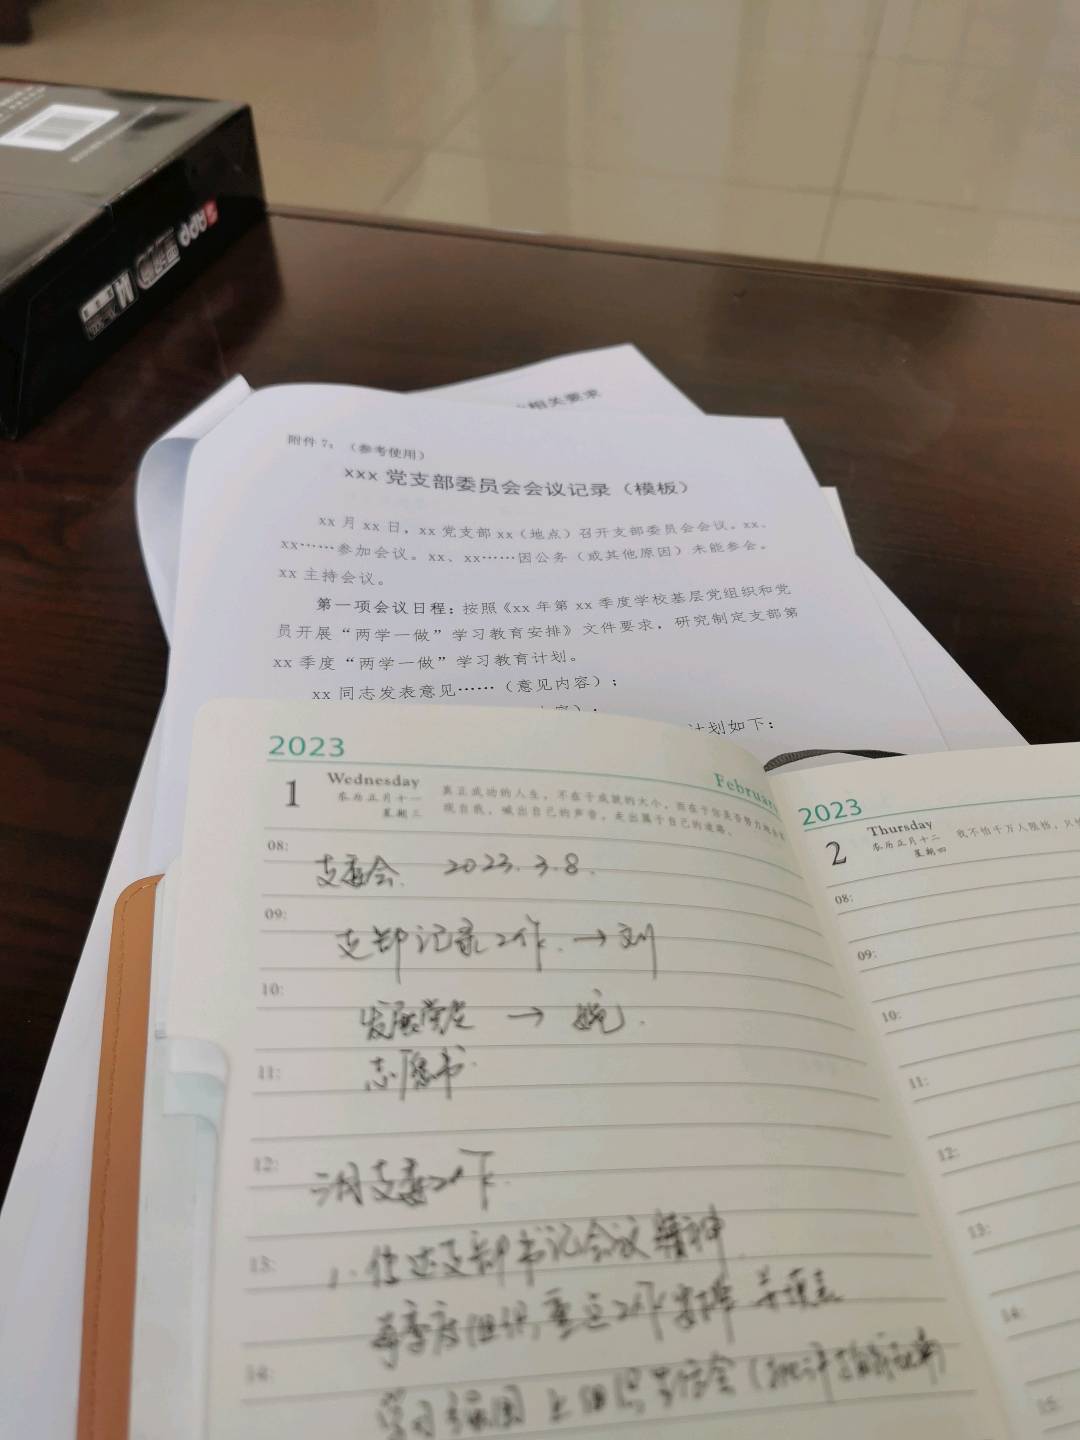 APP
相关要求
附件 7：（参考使用）
xxx 党支部委员会会议记录（模板）
xx 月 xx 日，xx 党支部 xx（地点）召开支部委员会会议。xx、
xx……参加会议。xx、xx……因公务（或其他原因）未能参会。
xx 主持会议。
第一项会议日程：按照《xx 年第 xx 季度学校基层党组织和党
员开展“两学一做”学习教育安排》文件要求，研究制定支部第
xx 季度“两学一做”学习教育计划。
xx 同志发表意见……（意见内容）；
计划如下：
2023
1 Wednesday February
农历正月十一
星期三
真正成功的人生，不在于成就的大小，而在于你是否努力地去实
现自我，喊出自己的声音，走出属于自己的道路。
08:
支委会 2023.3.8.
09:
支部记录工作. → 刘
10:
发展党员 →
11:
志愿书
12:
三月支委工作.
13:
1. 传达支部书记会议精神
每季度组织重点工作安排
14:
学习
2023
2 Thursday
农历正月十二
星期四
我不怕千万人阻挡，只怕
08:
09:
10:
11:
12:
13:
14:
15: